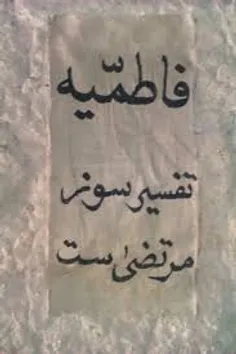 فاطمّیه
تفسیر سوز
مرتضیٰ ست